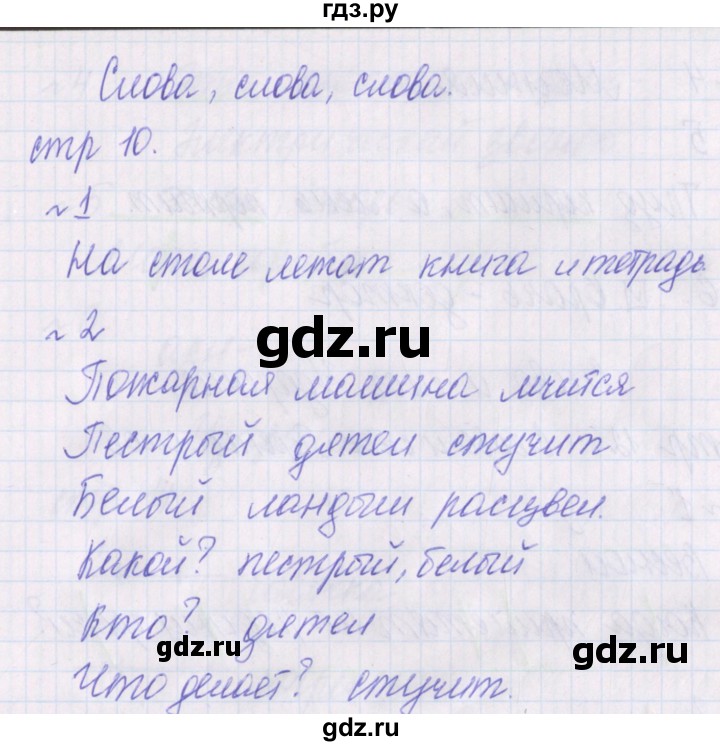 гдз.ру
Слова, слова, слова.
стр 10.
~ 1
На столе лежат книга и тетрадь
gdz.ru
~ 2
Пожарная машина мчится
Пестрый дятел стучит
Белый ландыш расцвел.
Какой? пестрый, белый
Кто? дятел
gdz.ru
gdz.ru
Что делает? стучит.
gdz.ru